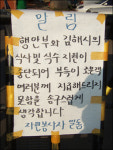 알림
행안부와 김해시의
식사및 식수 지원이
중단되어 부득이 요로케
여러분께 지유해드리지
못함을 송구스럽게
생각합니다
자원봉사자 일동